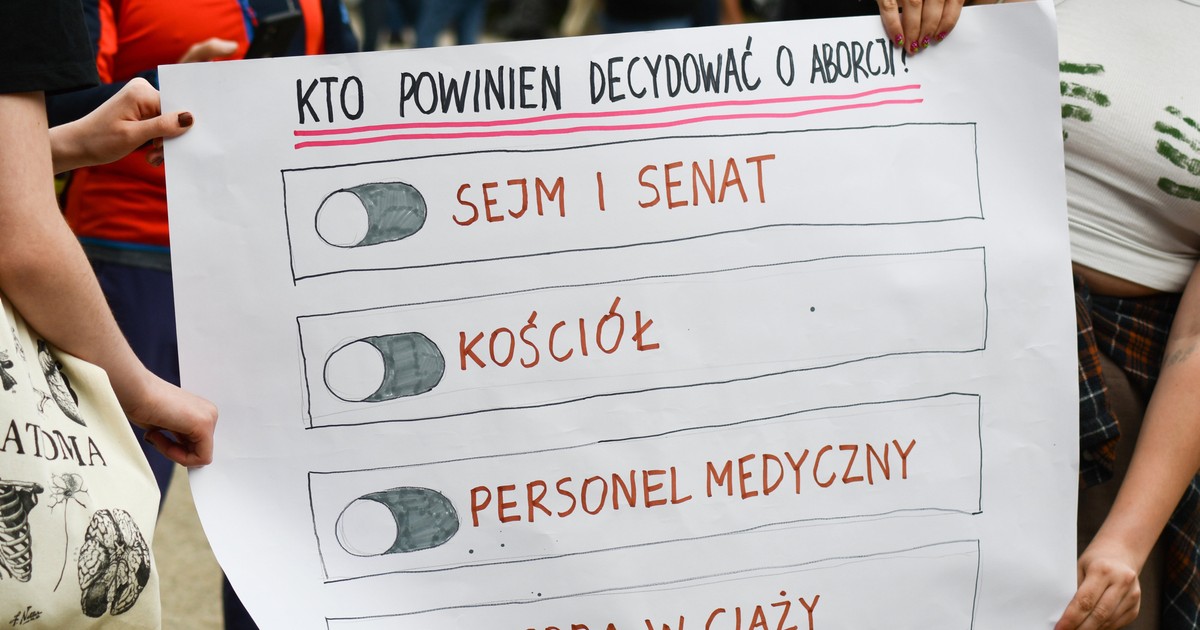 KTO POWINIEN DECYDOWAĆ O ABORCJI?
SEJM I SENAT
KOŚCIÓŁ
PERSONEL MEDYCZNY
W CIĄŻY